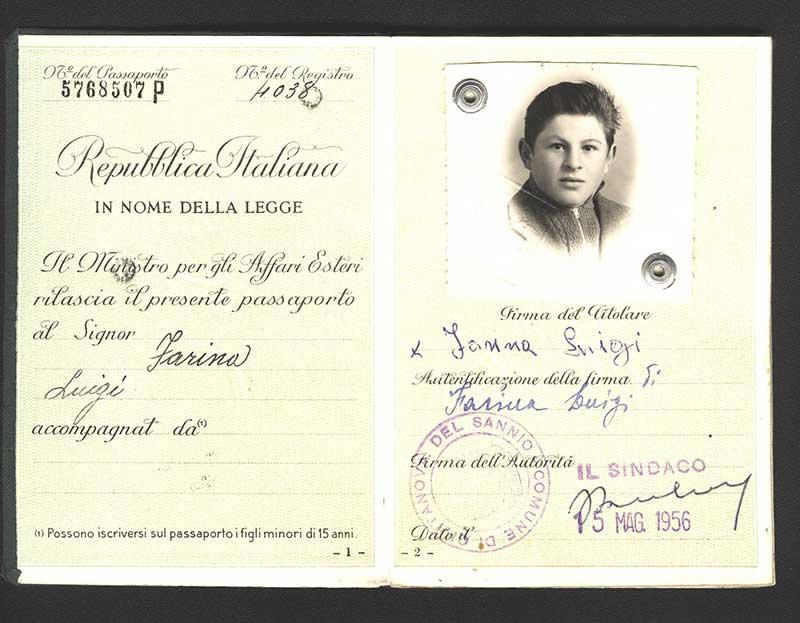 Nº del Passaporto
5768507 P
Nº del Registro
4038
Repubblica Italiana
IN NOME DELLA LEGGE
Il Ministro per gli Affari Esteri
rilascia il presente passaporto
al Signor Farina
Luigi
accompagnat da(1)
(1) Possono iscriversi sul passaporto i figli minori di 15 anni.
- 1 -
Firma del Titolare
x Farina Luigi
Autentificazione della firma di
Farina Luigi
Firma dell'Autorità
IL SINDACO
COMUNE DI CIVITANOVA DEL SANNIO
Dato il 15 MAG. 1956
- 2 -